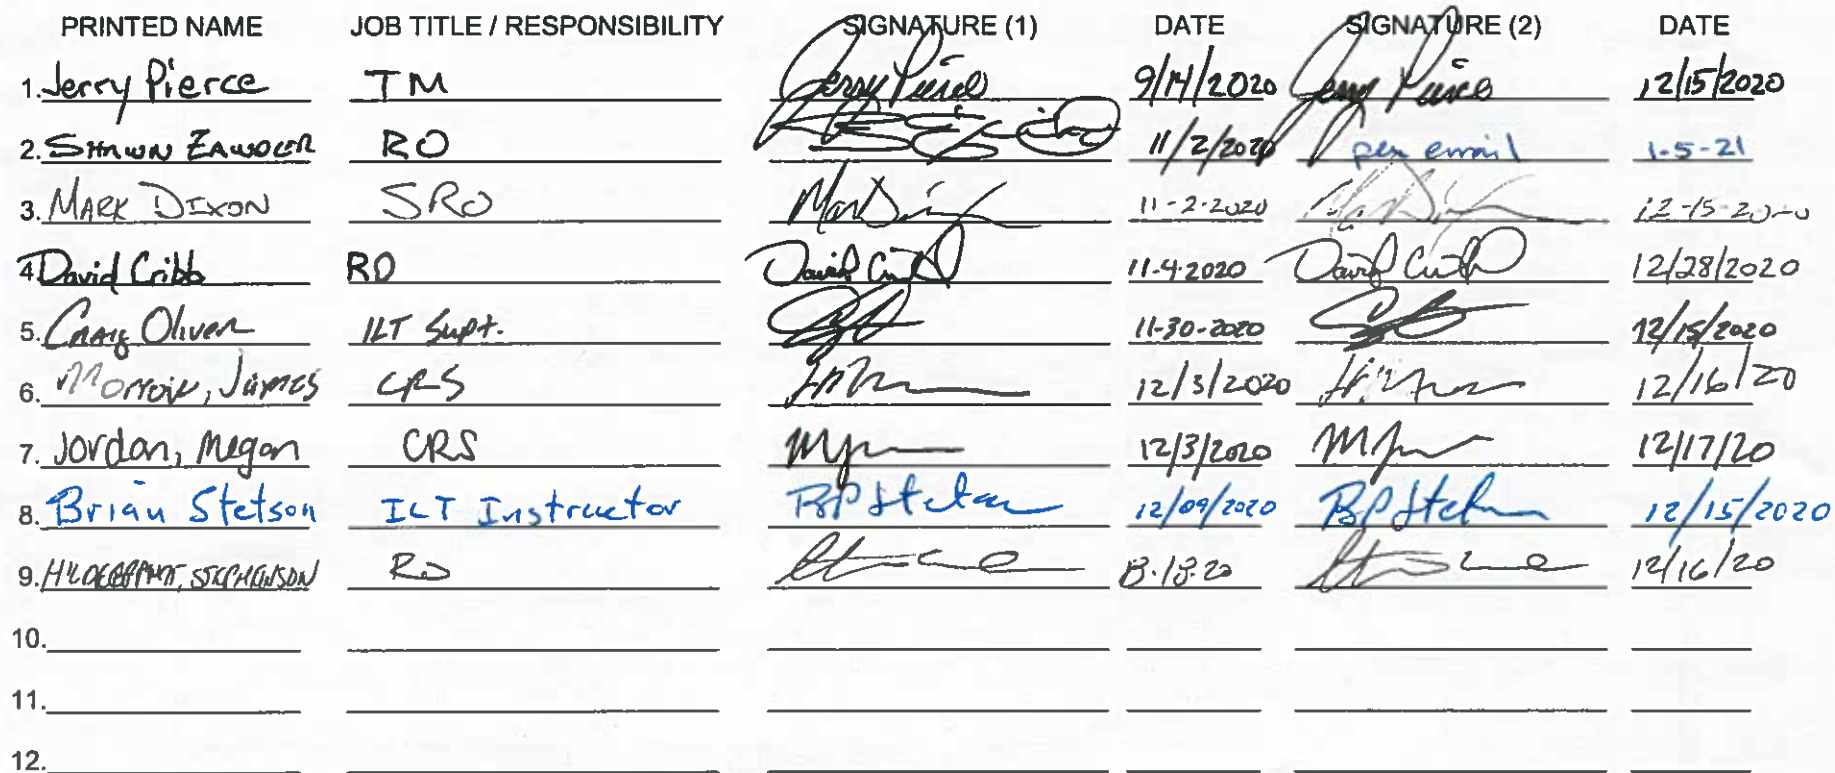 PRINTED NAME JOB TITLE / RESPONSIBILITY SIGNATURE (1) DATE SIGNATURE (2) DATE
1. Jerry Pierce TM Jerry Pierce 9/14/2020 Jerry Pierce 12/15/2020
2. SHAWN RO 11/2/2020 per email 1-5-21
3. MARK DIXON SRO 11-2-2020 12-15-2020
4. David Cribb RO David Cribb 11-4-2020 David Cribb 12/28/2020
5. CRAIG Oliver ILT Supt. 11-30-2020 12/15/2020
6. Morrow, James CRS 12/3/2020 12/16/20
7. Jordan, Megan CRS 12/3/2020 12/17/20
8. Brian Stetson ILT Instructor BP Stetson 12/09/2020 BP Stetson 12/15/2020
9. HILDEBRANDT, STEPHENSON RO 12/16/20
10.
11.
12.